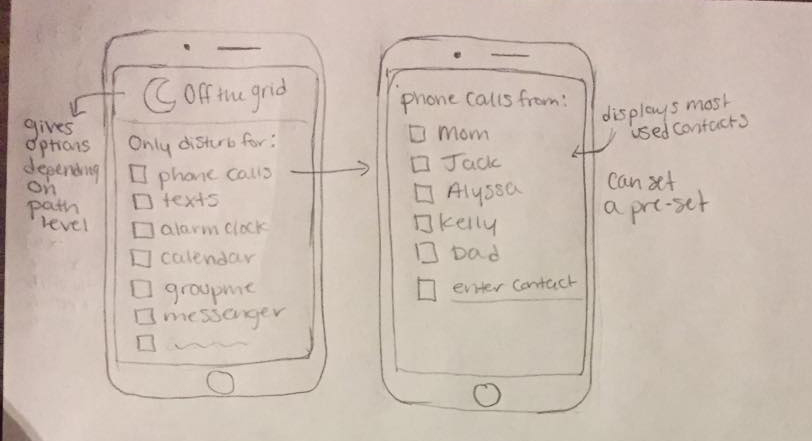 Off the grid
gives
options
depending
on
path
level
Only disturb for:
phone calls
texts
alarm clock
calendar
groupme
messenger
phone calls from:
Mom
Jack
Alyssa
Kelly
Dad
enter contact
displays most
used contacts
can set
a pre-set